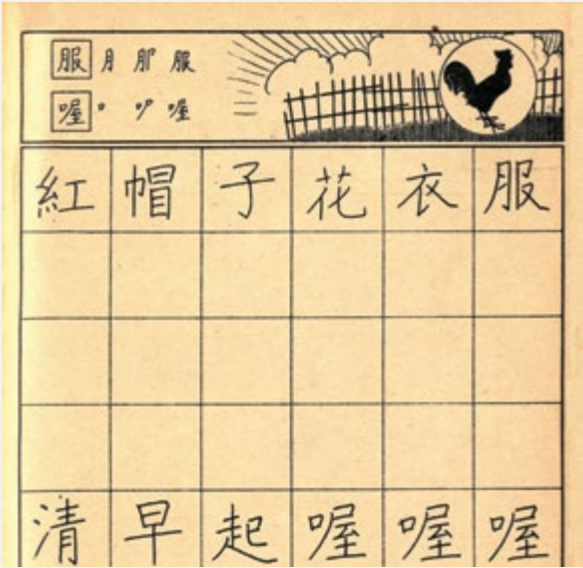 服 月 服 服
喔 喔
紅帽子花衣服
清早起喔喔喔